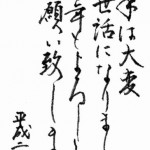 年は大変
世話になりまし
年もよろし
願い致しま
平成二